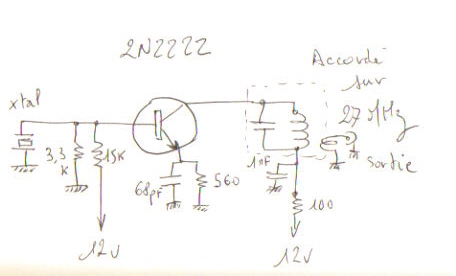 2N2222
Accordé
sur
27 MHz
sortie
xtal
3,3
K
15K
68pf
560
1nF
100
12v
12v